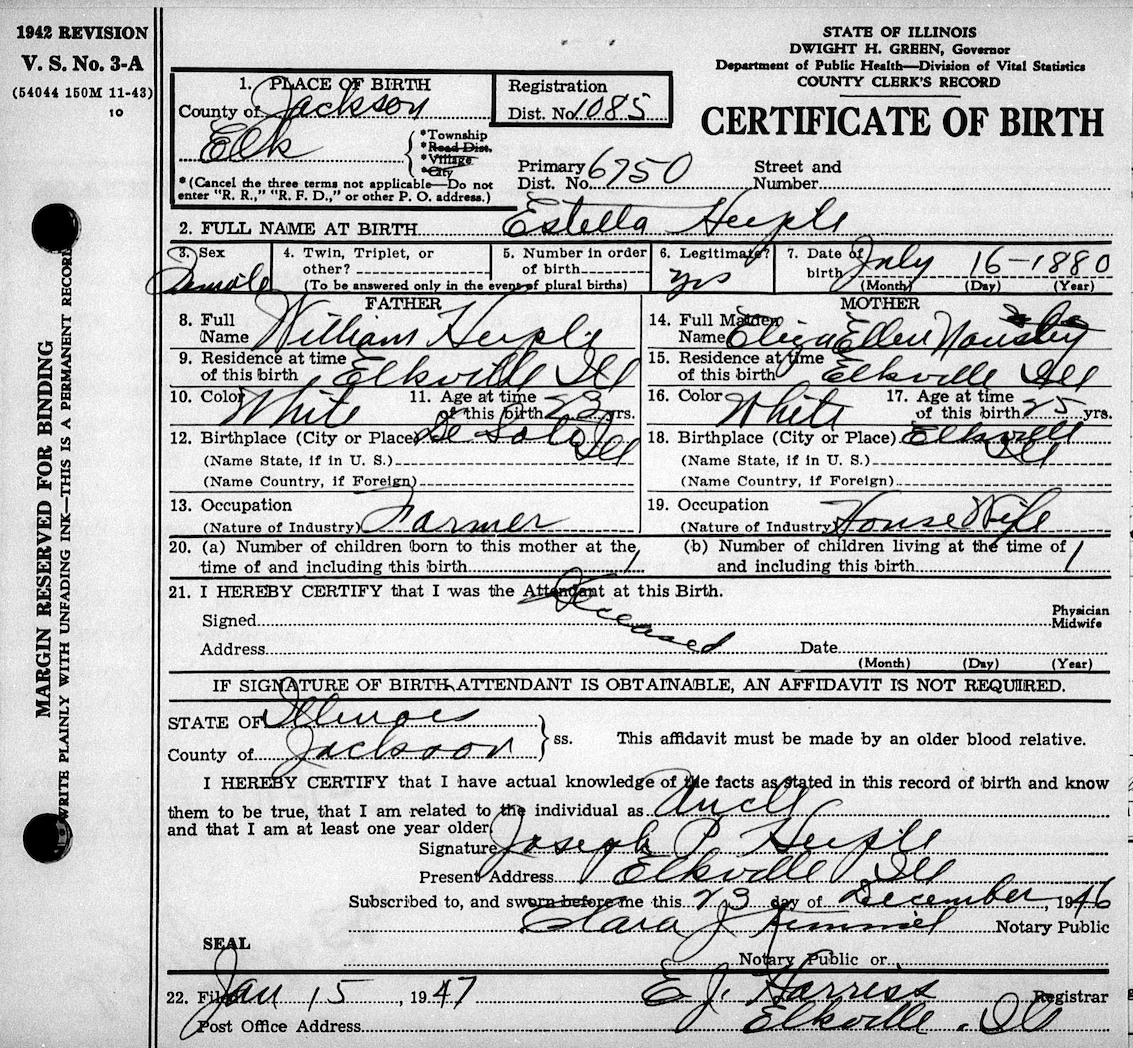 1942 REVISION
V. S. No. 3-A
(54044 150M 11-43)
10
MARGIN RESERVED FOR BINDING
WRITE PLAINLY WITH UNFADING INK—THIS IS A PERMANENT RECORD
STATE OF ILLINOIS
DWIGHT H. GREEN, Governor
Department of Public Health—Division of Vital Statistics
COUNTY CLERK'S RECORD
CERTIFICATE OF BIRTH
1. PLACE OF BIRTH
County of Jackson
Elk
*Township
*Road Dist.
*Village
*City
*(Cancel the three terms not applicable—Do not
enter "R. R.," "R. F. D.," or other P. O. address.)
Registration
Dist. No. 1085
Primary
Dist. No. 6750
Street and
Number
2. FULL NAME AT BIRTH Estella Heiple
3. Sex Female
4. Twin, Triplet, or
other?
5. Number in order
of birth
(To be answered only in the event of plural births)
6. Legitimate? yes
7. Date of
birth July 16-1880
(Month) (Day) (Year)
FATHER
8. Full
Name William Heiple
9. Residence at time
of this birth Elkville Ill
10. Color White
11. Age at time
of this birth 23 yrs.
12. Birthplace (City or Place) De Soto Ill
(Name State, if in U. S.)
(Name Country, if Foreign)
13. Occupation
(Nature of Industry) Farmer
MOTHER
14. Full Maiden
Name Eliza Ellen
15. Residence at time
of this birth Elkville Ill
16. Color White
17. Age at time
of this birth 25 yrs.
18. Birthplace (City or Place) Elkville
Ill
(Name State, if in U. S.)
(Name Country, if Foreign)
19. Occupation
(Nature of Industry) House Wife
20. (a) Number of children born to this mother at the
time of and including this birth 1
(b) Number of children living at the time of
and including this birth 1
21. I HEREBY CERTIFY that I was the Attendant at this Birth.
Deceased
Signed
Physician
Midwife
Address
Date
(Month) (Day) (Year)
IF SIGNATURE OF BIRTH ATTENDANT IS OBTAINABLE, AN AFFIDAVIT IS NOT REQUIRED.
STATE OF Illinois
County of Jackson
ss. This affidavit must be made by an older blood relative.
I HEREBY CERTIFY that I have actual knowledge of the facts as stated in this record of birth and know
them to be true, that I am related to the individual as Uncle
and that I am at least one year older.
Signature Joseph P. Heiple
Present Address Elkville Ill
Subscribed to, and sworn before me this 23 day of December, 1946
Clara J Kimmel Notary Public
SEAL
Notary Public or
22. Filed Jan 15, 1947 E J. Harriss Registrar
Post Office Address Elkville, Ill